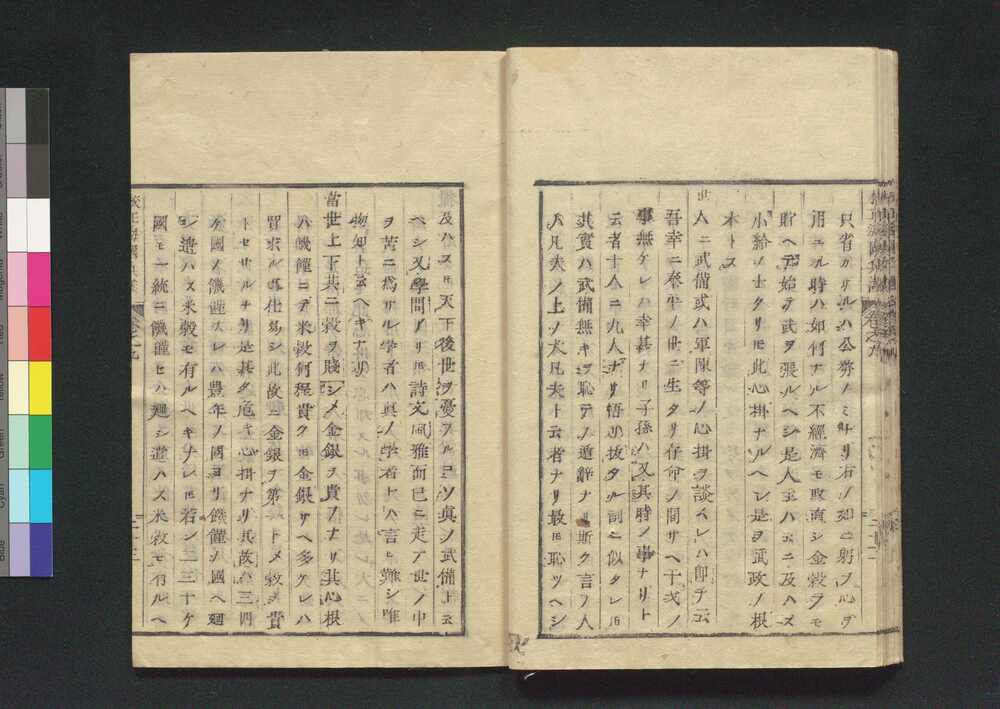 只省カサルハ公務ノミ叶リ右ノ如ニ躬ヲ心ヲ
用ユル時ハ如何ナル不經濟モ改直シ金穀ヲモ
貯ヘテ始テ武ヲ張ルヘシ是人主ハ云ニ及ハス
小給ノ士タリ𪜈此心掛ナルヘシ是ヲ武政ノ根
本トス
世人ニ武備或ハ軍陳等ノ心掛ヲ談スレハ即チ云
吾幸ニ泰平ノ世ニ生タリ存命ノ間サヘ干戈ノ
事無ケレハ幸甚ナリ子孫ハ又其時ノ事ナリト
云者十人ニ九人ナリ悟切抜タル詞ニ似タレ𪜈
其實ハ武備無キヲ恥テノ遁辞ナリ斯ク言フ人
ハ凡夫ノ上ノ大凡夫ト云者ナリ最𪜈恥ツヘシ
及ハス𪜈天下後世ヲ憂フルコソ真ノ武備ト云
ヘシ又學問アリ𪜈詩文風雅而已ニ走テ世ノ中
ヲ苦ニ為サル学者ハ真ノ学者トハ言ヒ難シ唯
物知ト云ヘキナリ
當世上下共ニ穀ヲ賤シメ金銀ヲ貴フナリ其心根
ハ饑饉ニテ米穀何程貴ク𪜈金銀サヘ多ケレハ
買求ル事仕易シ此故ニ金銀ヲ第一トメ穀ヲ貴
トセサルナリ是甚タ危キ心掛ナリ其故ハ三四
ケ國ノ饑饉スレハ豊年ノ國ヨリ饑饉ノ國ヘ廻
シ遣ハス米穀モ有ルヘキナレ𪜈若シ二三十ケ
國モ一統ニ饑饉セハ廻シ遣ハス米穀モ有ルヘ